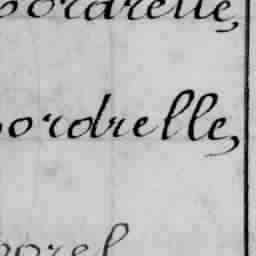 ordrelle,
ordrelle,
orel